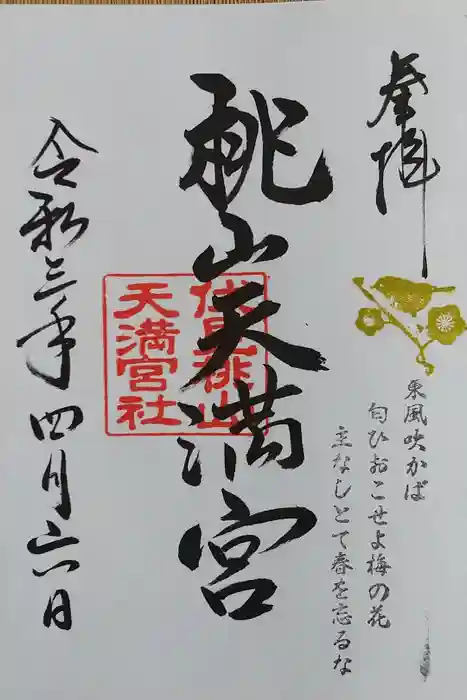 奉拝
東風吹かば
匂ひおこせよ梅の花
主なしとて春を忘るな
桃山天満宮
伏見桃山
天満宮社
令和三年四月六日